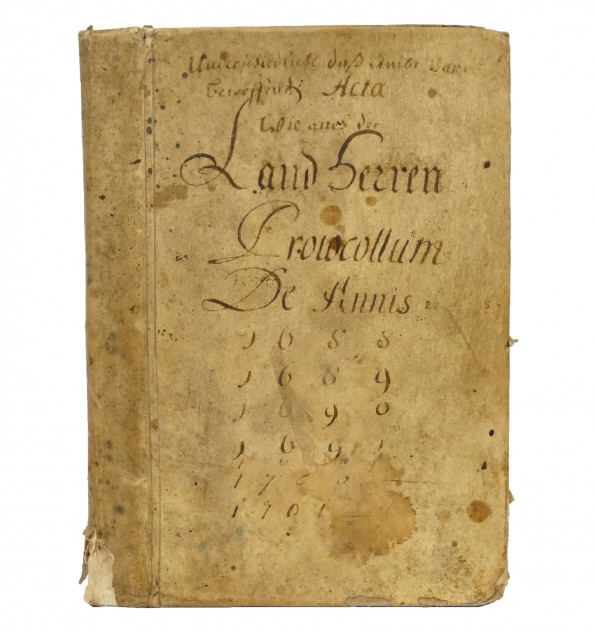 Unterschiedliche daß Ambt
betreffende Acta
Wie auch der
Land Herren
Protocollum
De Annis
1 6 8 8
1 6 8 9
1 6 9 0
1 6 9 1
1 7 0 0
1 7 0 1